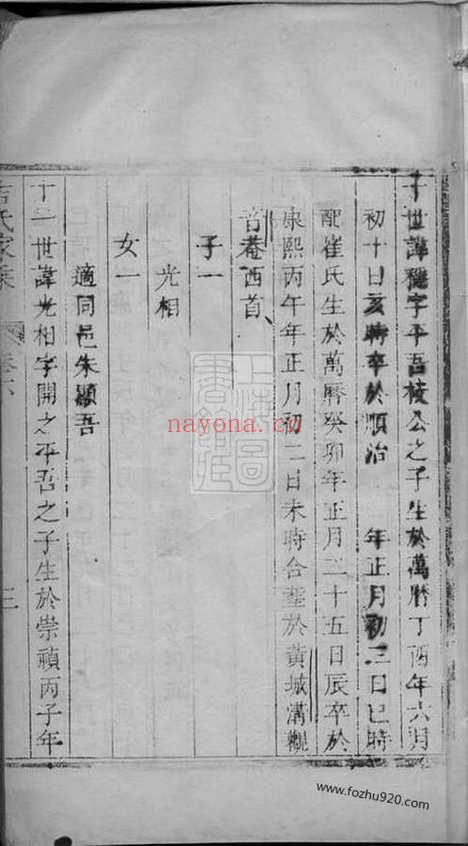 十世諱穩字平吾校公之子生於萬曆丁酉年六月
初十日亥時卒於順治　　年正月初三日巳時
配崔氏生於萬曆癸卯年正月二十五日辰卒於
康熙丙午年正月初二日未時合塟於黃城溝觀
音菴西首、
子一
光相
女一
適同邑朱顯吾
十一世諱光相字開之平吾之子生於崇禎丙子年
氏家乘
卷六
三
nayona.cn
www.fozhu920.com